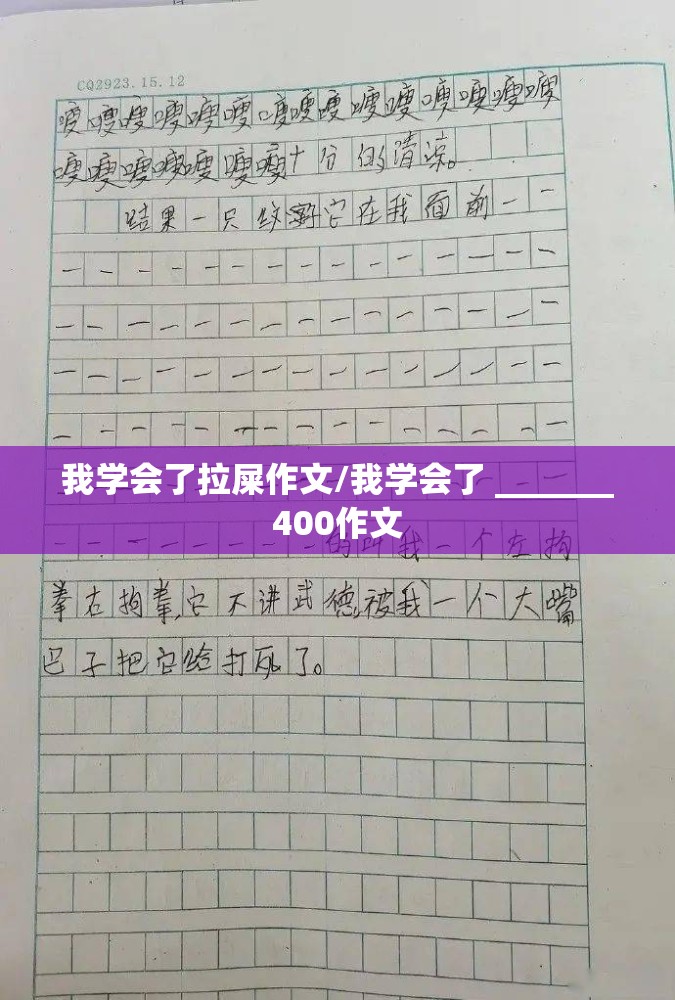 CQ2923.15.12
嗖嗖嗖嗖嗖嗖嗖嗖嗖嗖嗖嗖嗖嗖嗖
嗖嗖嗖嗖嗖嗖嗖十分的清凉。
结果一只纹它在我面前一一
一一一一一一一一一一一一一一一
一一一一一一一一一一一一一一一
一一一一一一一一一一一一一一一
一一一一一一一一一一一一一一一
我学会了拉屎作文/我学会了 _______
400作文
一一一一一一一一的叫我一个左拘
拳右拘拳,它不讲武德,被我一个大嘴
巴子把它给打死了。